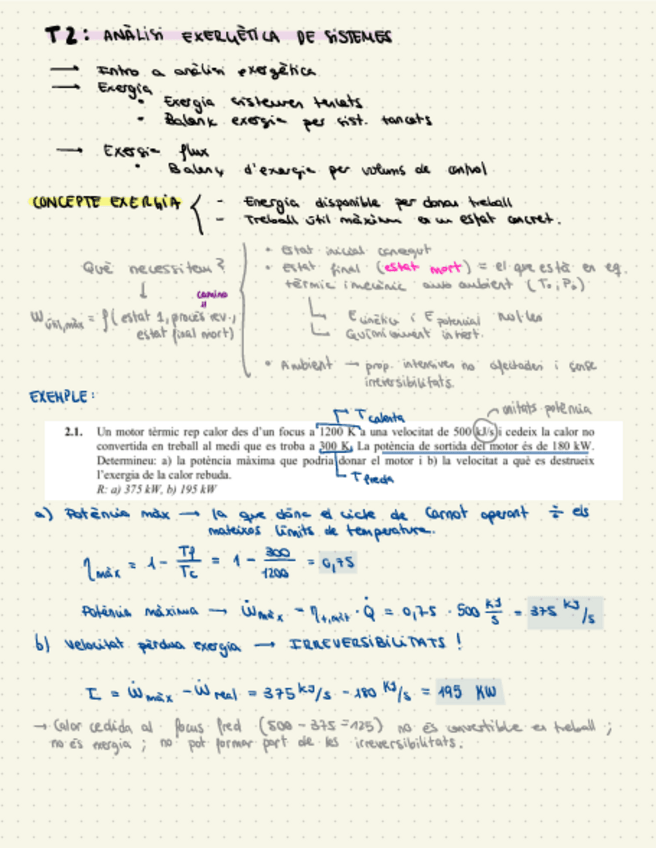 T2: ANÀLISI EXERGÈTICA DE SISTEMES
→ Intro a anàlisi exergètica
→ Exergia
• Exergia sistemes tancats
• Balanç exergia per sist. tancats
→ Exergia flux
• Balanç d'exergia per volums de control
CONCEPTE EXERGIA
- Energia disponible per donar treball
- Treball útil màxim en un estat concret.
Què necessitem?
↓
camino
W útil,màx = f(estat 1, procés rev., estat final mort)
• estat inicial conegut
• estat final (estat mort) = el que està en eq.
tèrmic i mecànic amb ambient (T0, P0)
E cinètica i E potencial nul·les
Químicament inert.
• Ambient → prop. intensives no afectades i sense
irreversibilitats.
EXEMPLE:
T calenta
unitats potència
2.1. Un motor tèrmic rep calor des d'un focus a 1200 K a una velocitat de 500 kJ/s i cedeix la calor no
convertida en treball al medi que es troba a 300 K. La potència de sortida del motor és de 180 kW.
Determineu: a) la potència màxima que podria donar el motor i b) la velocitat a què es destrueix
l'exergia de la calor rebuda.
T freda
R: a) 375 kW, b) 195 kW
a) Potència màx → la que dóna el cicle de Carnot operant ÷ els
mateixos límits de temperatura.
η màx = 1 - Tf/Tc = 1 - 300/1200 = 0,75
Potència màxima → Ẇmàx = ηt,màx · Q̇ = 0,75 · 500 kJ/s = 375 kJ/s
b) Velocitat pèrdua exergia → IRREVERSIBILITATS!
I = Ẇmàx - Ẇreal = 375 kJ/s - 180 kJ/s = 195 KW
→ Calor cedida al focus fred (500 - 375 = 125) no és convertible en treball;
no és exergia; no pot formar part de les irreversibilitats.